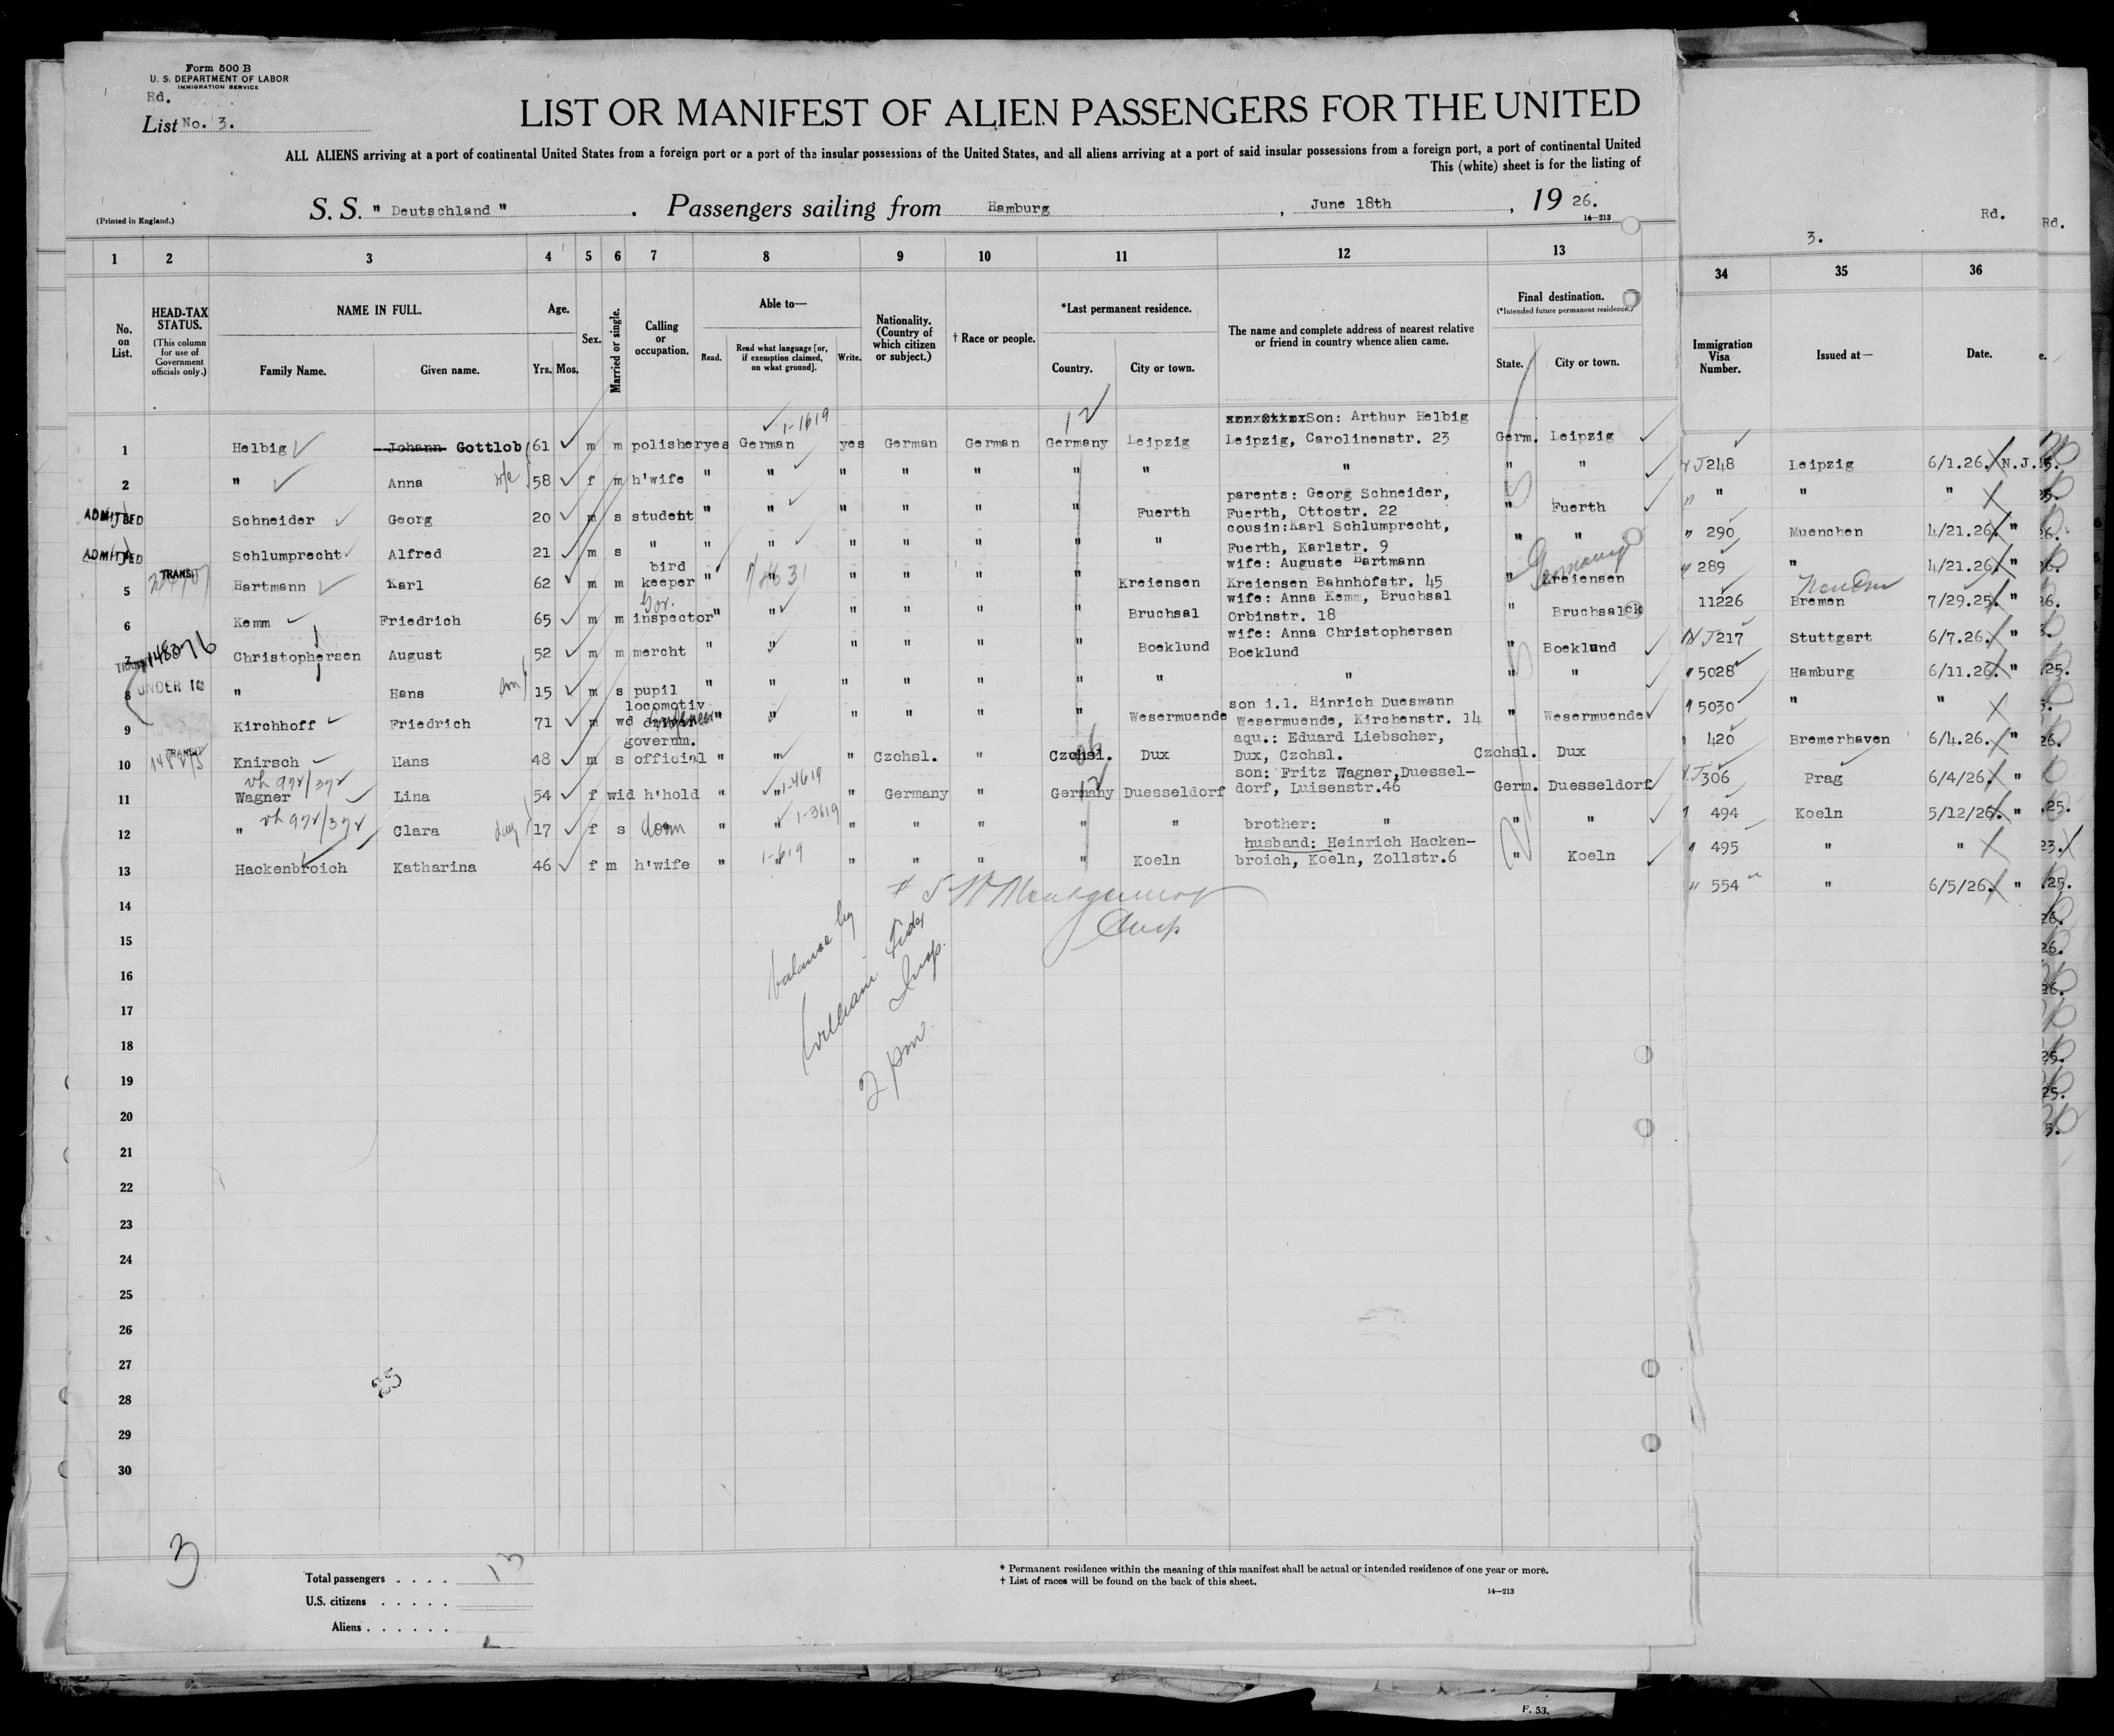 Form 500 B
U. S. DEPARTMENT OF LABOR
IMMIGRATION SERVICE
Rd.
List No. 3.
LIST OR MANIFEST OF ALIEN PASSENGERS FOR THE UNITED
ALL ALIENS arriving at a port of continental United States from a foreign port or a port of the insular possessions of the United States, and all aliens arriving at a port of said insular possessions from a foreign port, a port of continental United
This (white) sheet is for the listing of
(Printed in England.)
S. S. " Deutschland " . Passengers sailing from Hamburg , June 18th , 19 26.
14—213
Rd. Rd.
3.
1 2 3 4 5 6 7 8 9 10 11 12 13 34 35 36
No. on List.
HEAD-TAX STATUS.
(This column for use of Government officials only.)
NAME IN FULL.
Family Name. Given name.
Age.
Yrs. Mos.
Sex.
Married or single.
Calling or occupation.
Able to—
Read. Read what language [or, if exemption claimed, on what ground]. Write.
Nationality. (Country of which citizen or subject.)
† Race or people.
*Last permanent residence.
Country. City or town.
The name and complete address of nearest relative or friend in country whence alien came.
Final destination.
(*Intended future permanent residence.)
State. City or town.
Immigration Visa Number.
Issued at—
Date.
1-1619 12 Son: Arthur Helbig
1 Helbig Johann Gottlob 61 m m polisher yes German yes German German Germany Leipzig Leipzig, Carolinenstr. 23 Germ. Leipzig J248 Leipzig 6/1.26. N.J.
2 " Anna w/e 58 f m h'wife " " " " " " " " " " " " "
parents: Georg Schneider,
ADMITTED Schneider Georg 20 m s student " " " " " " Fuerth Fuerth, Ottostr. 22 " Fuerth " 290 Muenchen 4/21.26. "
cousin:Karl Schlumprecht,
ADMITTED Schlumprecht Alfred 21 m s " " " " " " " " Fuerth, Karlstr. 9 " " " 289 " 4/21.26.
bird wife: Auguste Hartmann Germany
TRANSIT
5 Hartmann Karl 62 m m keeper " " " " " " Kreiensen Kreiensen Bahnhofstr. 45 " Kreiensen 11226 Bremen 7/29.25. "
Gov. wife: Anna Kemm, Bruchsal
6 Kemm Friedrich 65 m m inspector " " " " " " Bruchsal Orbinstr. 18 " Bruchsal J217 Stuttgart 6/7.26. "
wife: Anna Christophersen
7 TRANSIT 148376 Christophersen August 52 m m mercht " " " " " " Boeklund Boeklund " Boeklund " 5028 Hamburg 6/11.26. "
8 UNDER 16 " Hans 15 m s pupil " " " " " " " " " " " 5030 " "
locomotiv son i.l. Hinrich Duesmann
9 Kirchhoff Friedrich 71 m wd driver " " " " " " Wesermuende Wesermuende, Kirchenstr. 14 " Wesermuende 420 Bremerhaven 6/4.26. "
governm. aqu.: Eduard Liebscher,
TRANSIT
10 Knirsch Hans 48 m s official " " " Czchsl. " Czchsl. Dux Dux, Czchsl. Czchsl. Dux J306 Prag 6/4/26. "
1-4619 12 son: Fritz Wagner,Duessel-
11 Wagner Lina 54 f wid h'hold " " " Germany " Germany Duesseldorf dorf, Luisenstr.46 Germ. Duesseldorf 494 Koeln 5/12/26. "
1-3619
12 " Clara 17 f s " " " " " " " brother: " " " 495 " "
1-619 husband: Heinrich Hacken-
13 Hackenbroich Katharina 46 f m h'wife " " " " " " Koeln broich, Koeln, Zollstr.6 " Koeln " 554 " 6/5/26. "
14
15
16
17
18
19
20
21
22
23
24
25
26
27
28
29
30
balance by
William
Insp.
2 pm.
25
3
Total passengers . . . . 13
U.S. citizens . . . . .
Aliens . . . . . .
* Permanent residence within the meaning of this manifest shall be actual or intended residence of one year or more.
† List of races will be found on the back of this sheet.
14—213
F. 53.